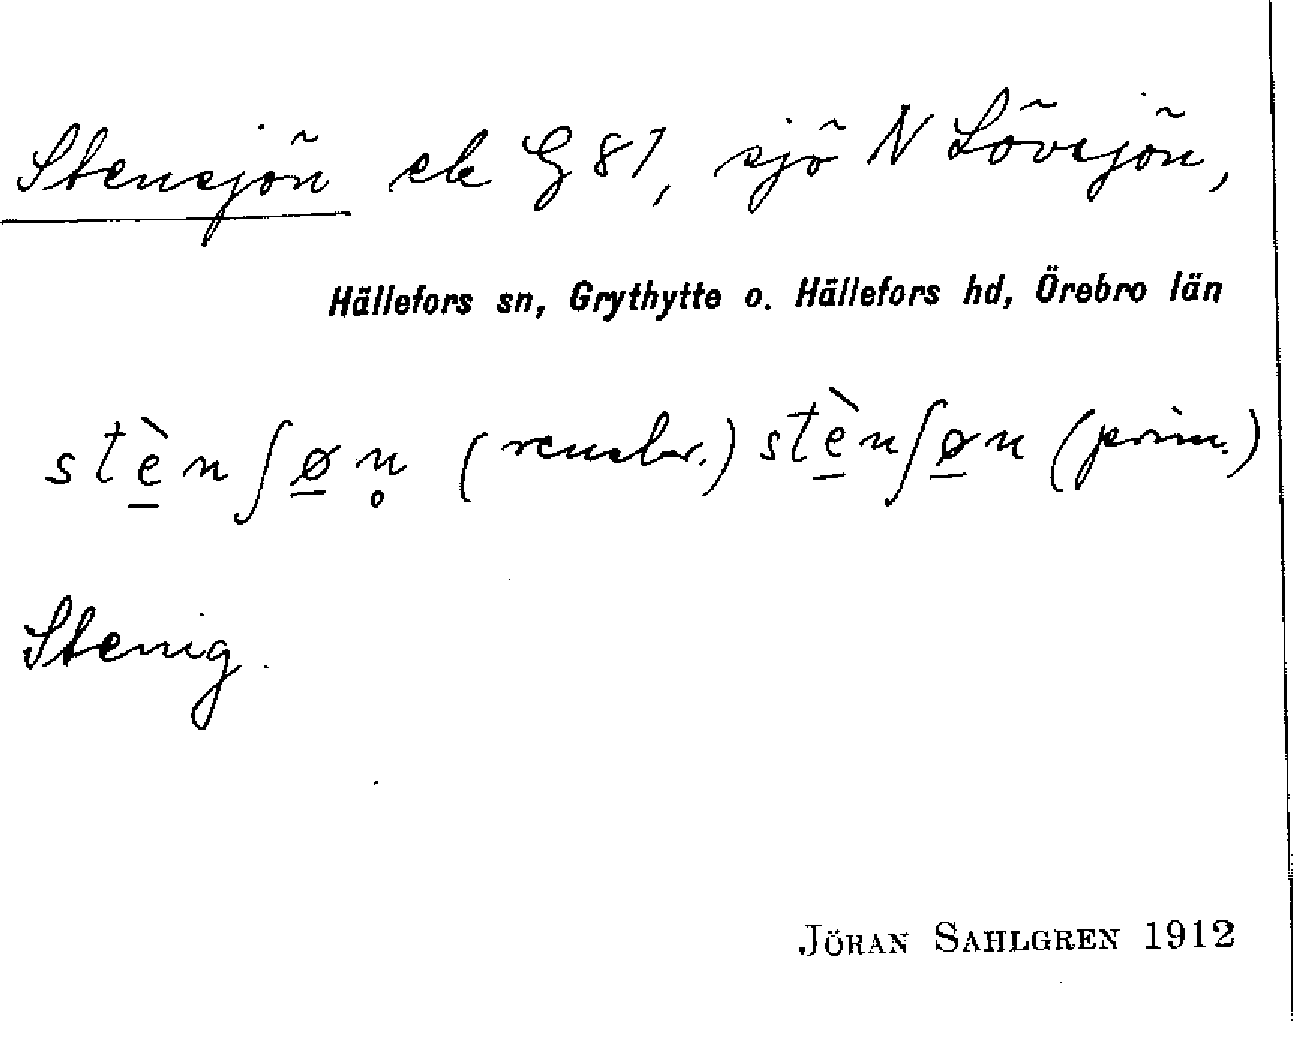 Stensjön ek G 81, sjö N Lövsjön,
Hällefors sn, Grythytte o. Hällefors hd, Örebro län
stè̱nʃø̱n̥ (rensler.) stè̱nʃø̱n (prim.)
Stenig.
JÖRAN SAHLGREN 1912